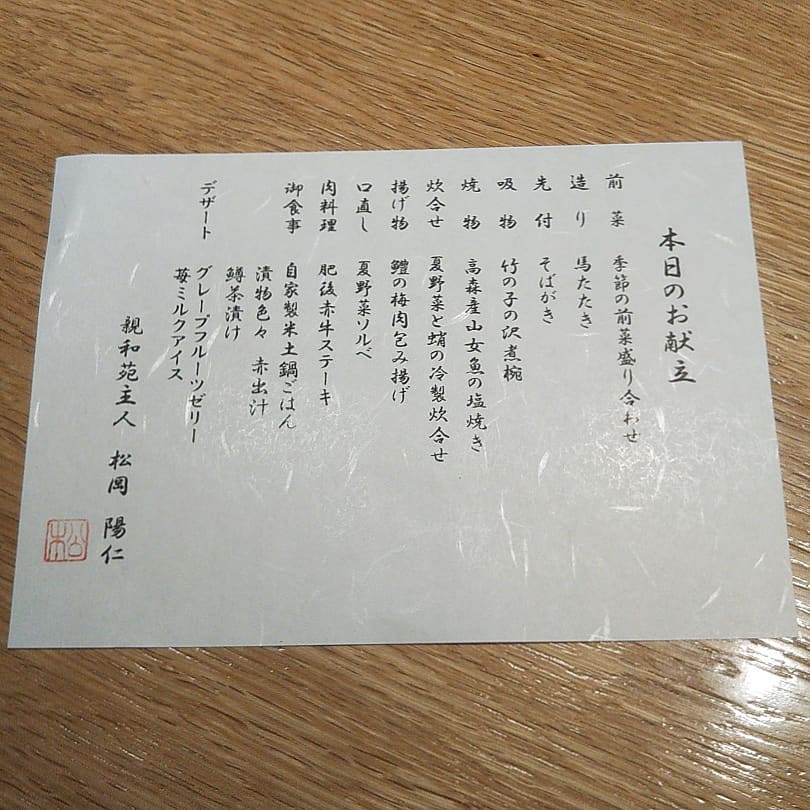 本日のお献立
前菜 季節の前菜盛り合わせ
造り 馬たたき
先付 そばがき
吸物 竹の子の沢煮椀
焼物 高森産山女魚の塩焼き
炊合せ 夏野菜と蛸の冷製炊合せ
揚げ物 鱧の梅肉包み揚げ
口直し 夏野菜ソルベ
肉料理 肥後赤牛ステーキ
御食事 自家製米土鍋ごはん
漬物色々 赤出汁
鱒茶漬け
デザート グレープフルーツゼリー
苺ミルクアイス
親和苑主人 松岡 陽仁
松